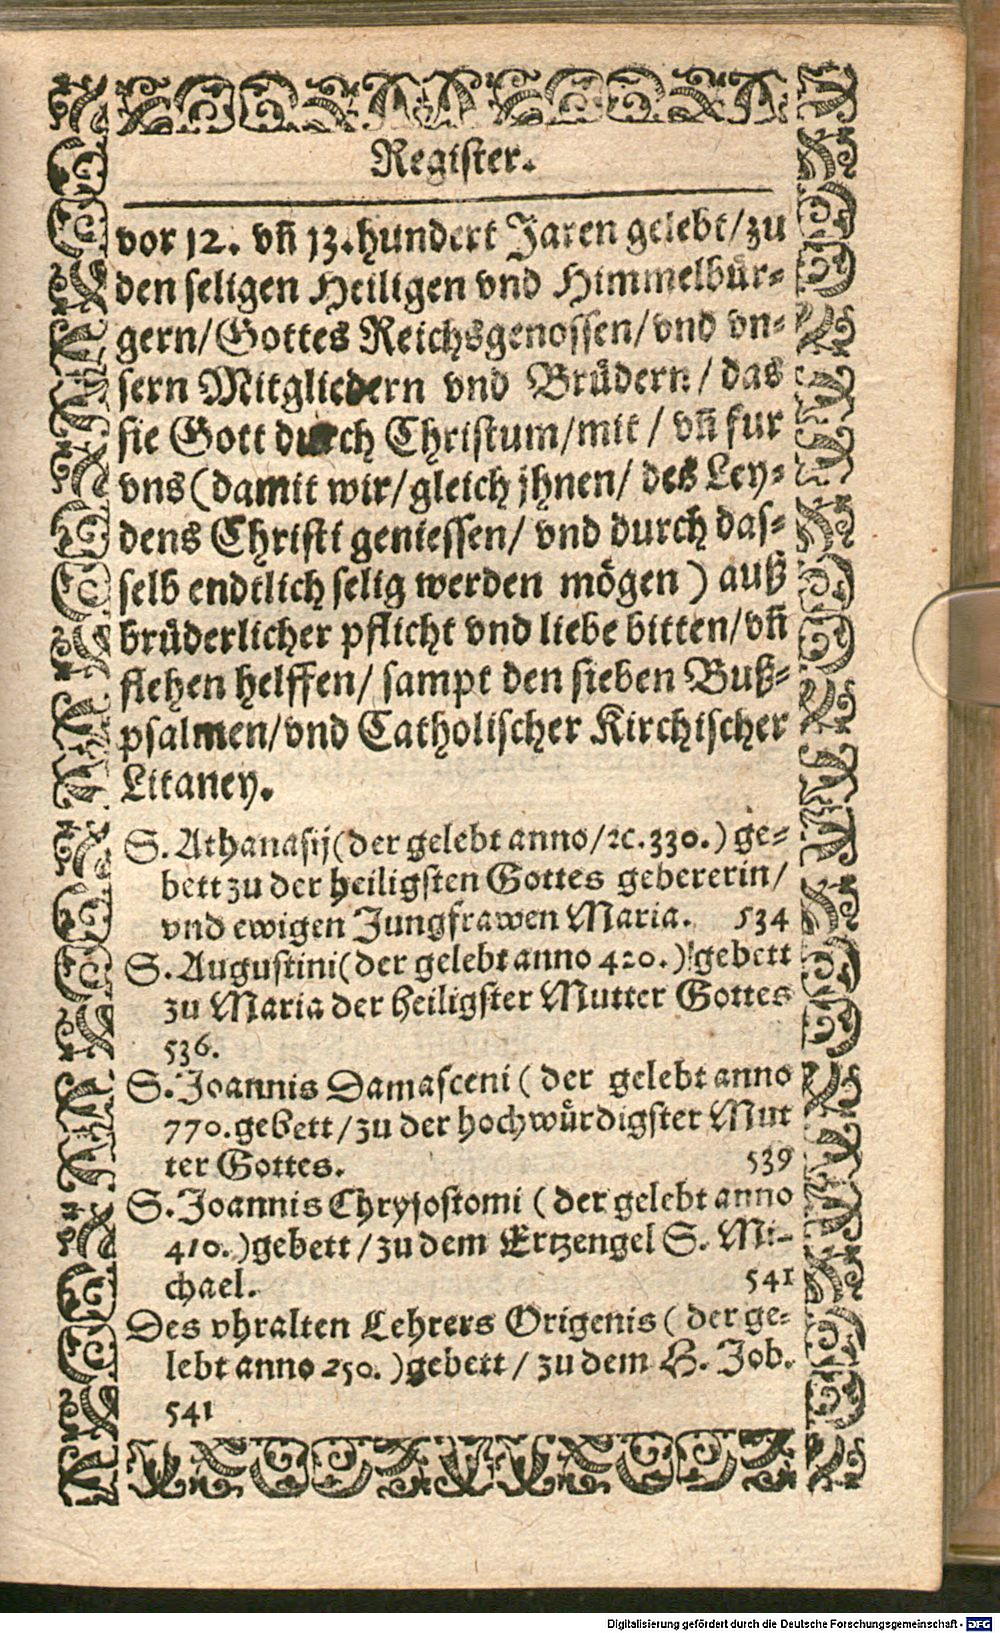 Register.
vor 12. vñ 13. hundert Jaren gelebt/zu
den seligen Heiligen vnd Himmelbür-
gern/Gottes Reichsgenossen/vnd vn-
sern Mitgliedern vnd Brüdern/das
sie Gott durch Christum/mit/vñ fur
vns(damit wir/gleich jhnen/des Ley-
dens Christi geniessen/vnd durch das-
selb endtlich selig werden mögen) auß
brüderlicher pflicht vnd liebe bitten/vñ
flehen helffen/sampt den sieben Buß-
psalmen/vnd Catholischer Kirchischer
Litaney.
S. Athanasij(der gelebt anno/ꝛc.330.) ge-
bett zu der heiligsten Gottes gebererin/
vnd ewigen Jungfrawen Maria. 534
S. Augustini(der gelebt anno 420.) gebett
zu Maria der heiligster Mutter Gottes
536.
S. Joannis Damasceni (der gelebt anno
770.gebett/zu der hochwürdigster Mut
ter Gottes. 539
S. Joannis Chrysostomi (der gelebt anno
410.)gebett/zu dem Ertzengel S. Mi-
chael. 541
Des vhralten Lehrers Origenis (der ge-
lebt anno 250.)gebett/zu dem H. Job.
541
Digitalisierung gefördert durch die Deutsche Forschungsgemeinschaft - DFG